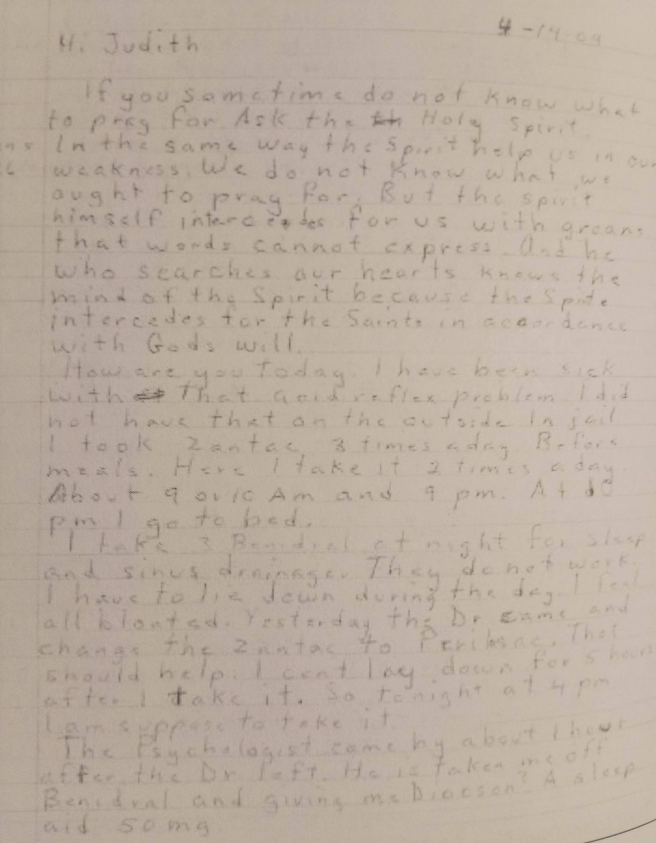 4-14-04
Hi Judith
If you sometime do not know what
to pray for Ask the Holy Spirit.
In the same way the Spirit help us in our
weakness. We do not know what we
ought to pray for, But the spirit
himself intercedes for us with groans
that words cannot express. And he
who searches our hearts knows the
mind of the Spirit because the Spite
intercedes for the Saints in accordance
with Gods will.
How are you Today. I have been sick
with That acid reflex problem I did
not have that on the outside In jail
I took Zantac 3 times a day Before
meals. Here I take it 2 times a day
About 9 or 10 Am and 9 pm. At 10
pm I go to bed.
I take 3 Benidral at night for sleep
and sinus drainage. They do not work
I have to lie down during the day I feel
all bloated. Yesterday the Dr came and
change the Zantac to That
should help. I cant lay down for 5 hours
after I take it. So tonight at 4 pm
I am suppose to take it.
The Psychologist came by about 1 hour
after the Dr left. He is taken me off
Benidral and giving me A sleep
aid 50 mg